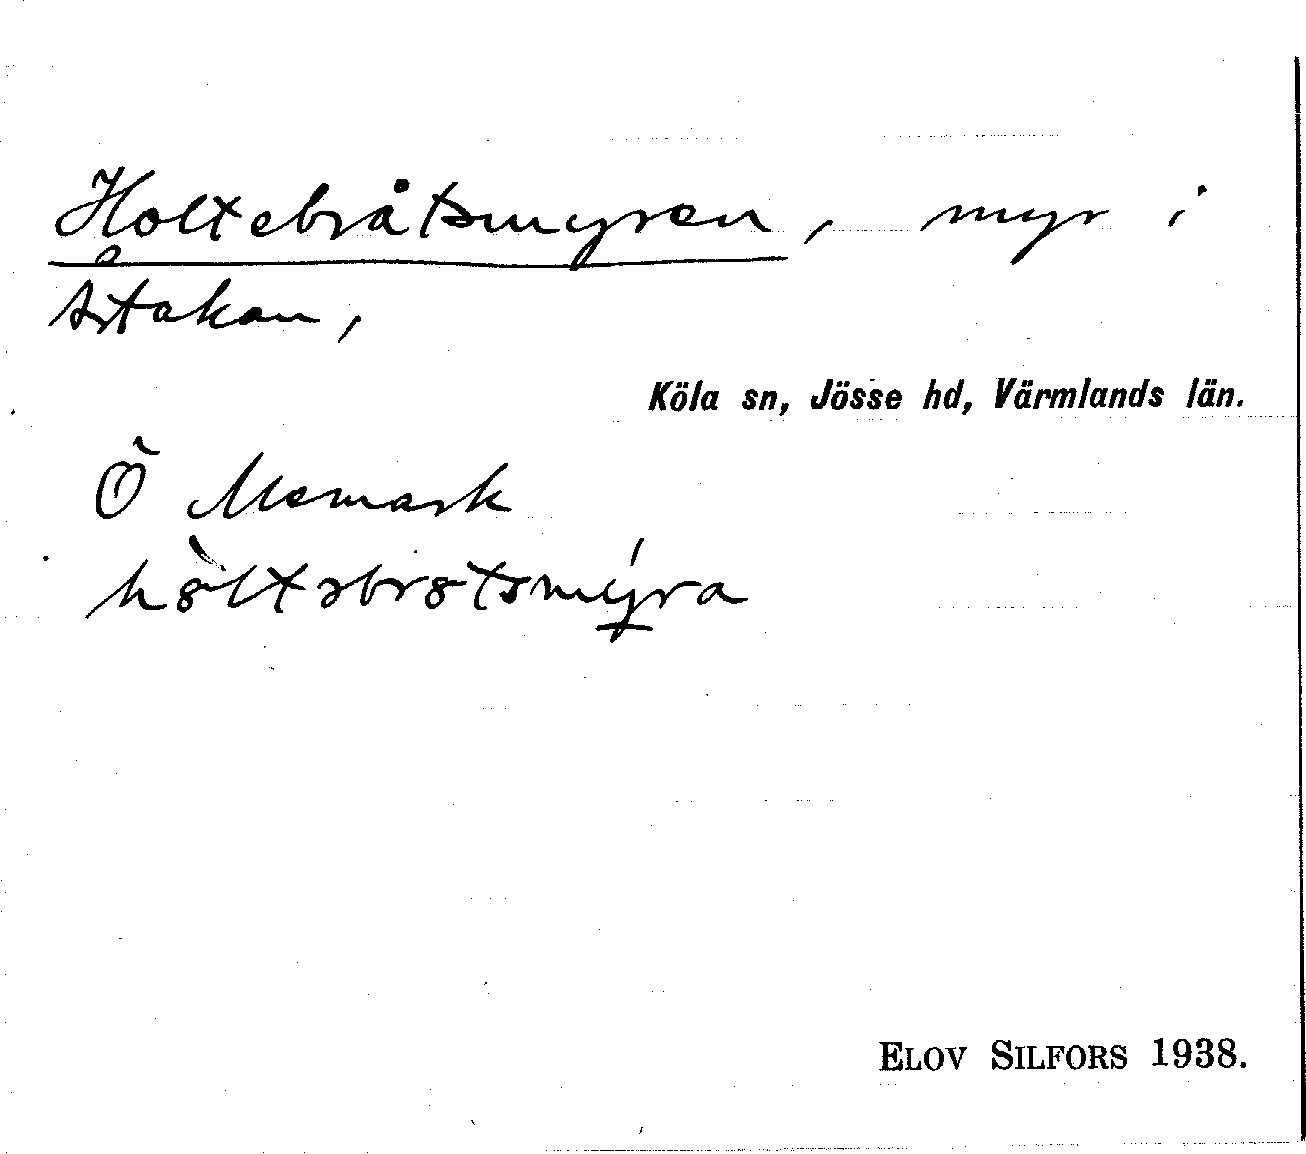 Holtebråtsmyren, myr i
Astakan,
Köla sn, Jösse hd, Värmlands län.
Ö Memark
hòltəbrotsmýra
ELOV SILFORS 1938.